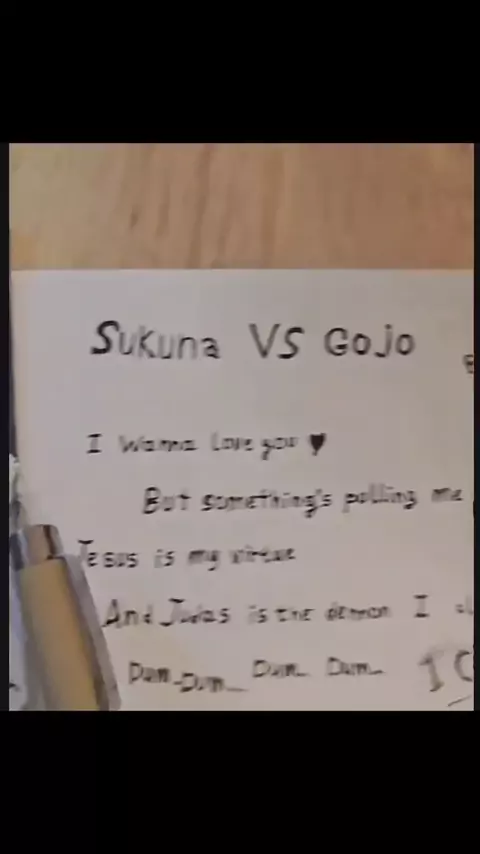 Sukuna VS Gojo
I wanna love you ♥
But something's pulling me
Jesus is my virtue
And Judas is the demon I
Dum_Dum_ Dum_ Dum_ I